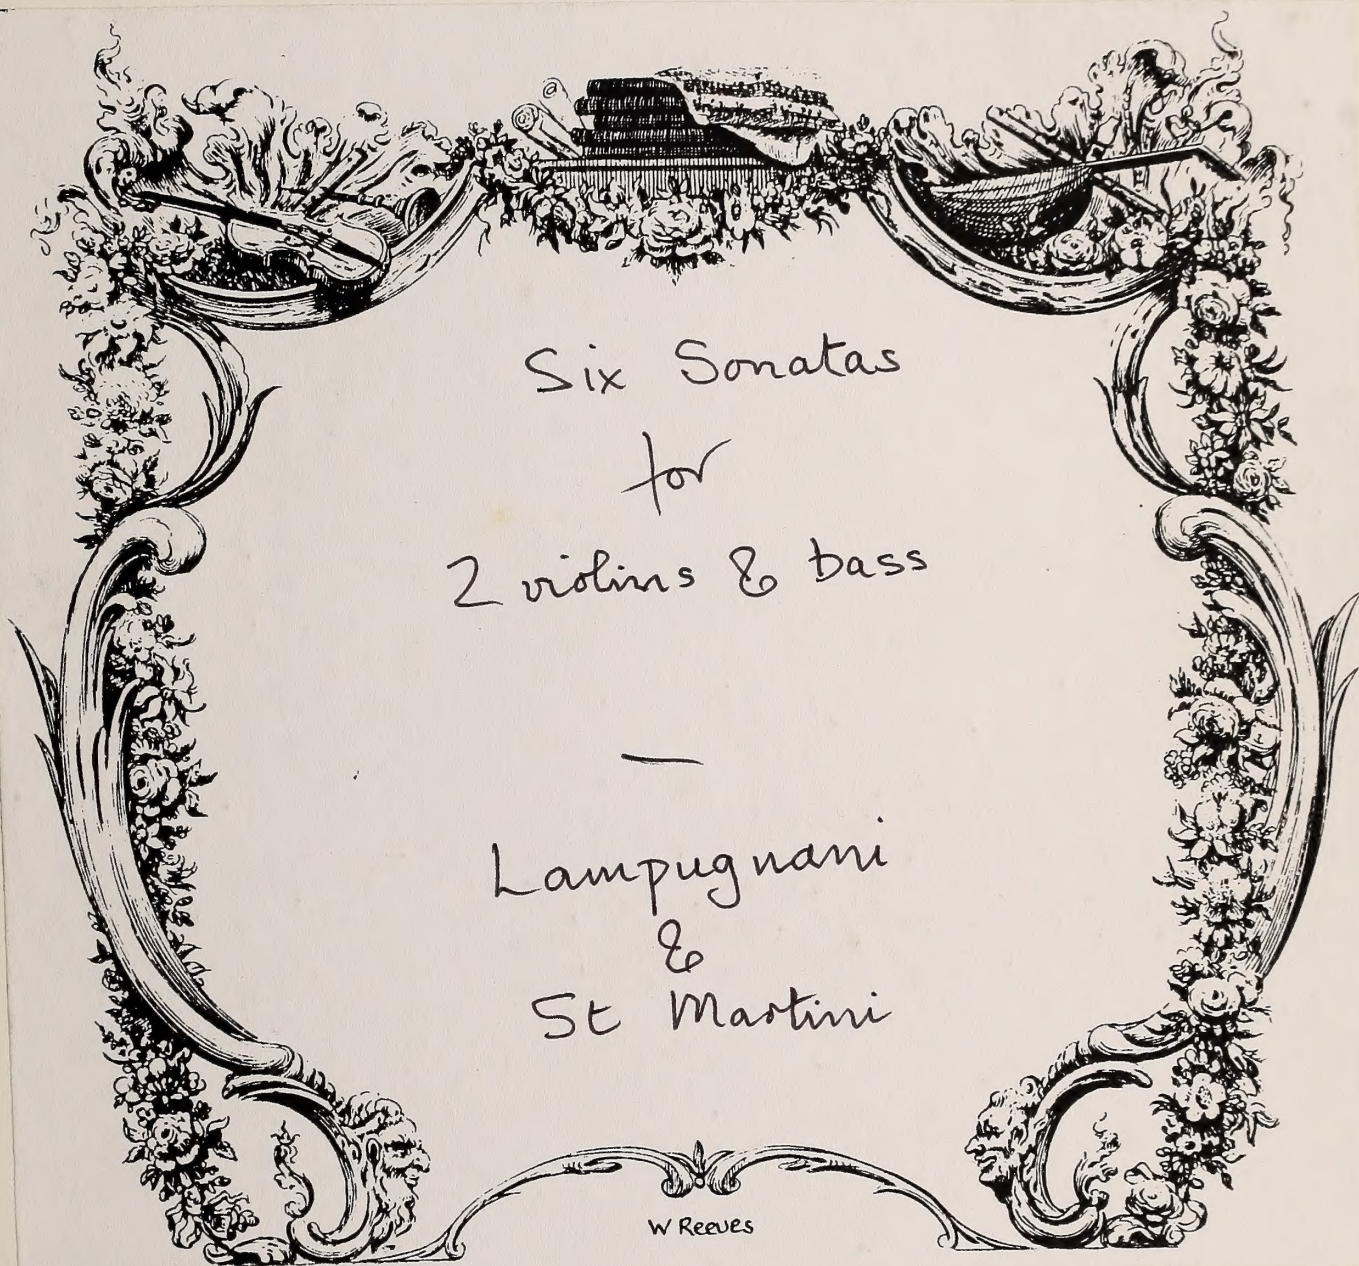 Six Sonatas
for
2 violins & bass
—
Lampugnani
&
St Martini
W Reeves